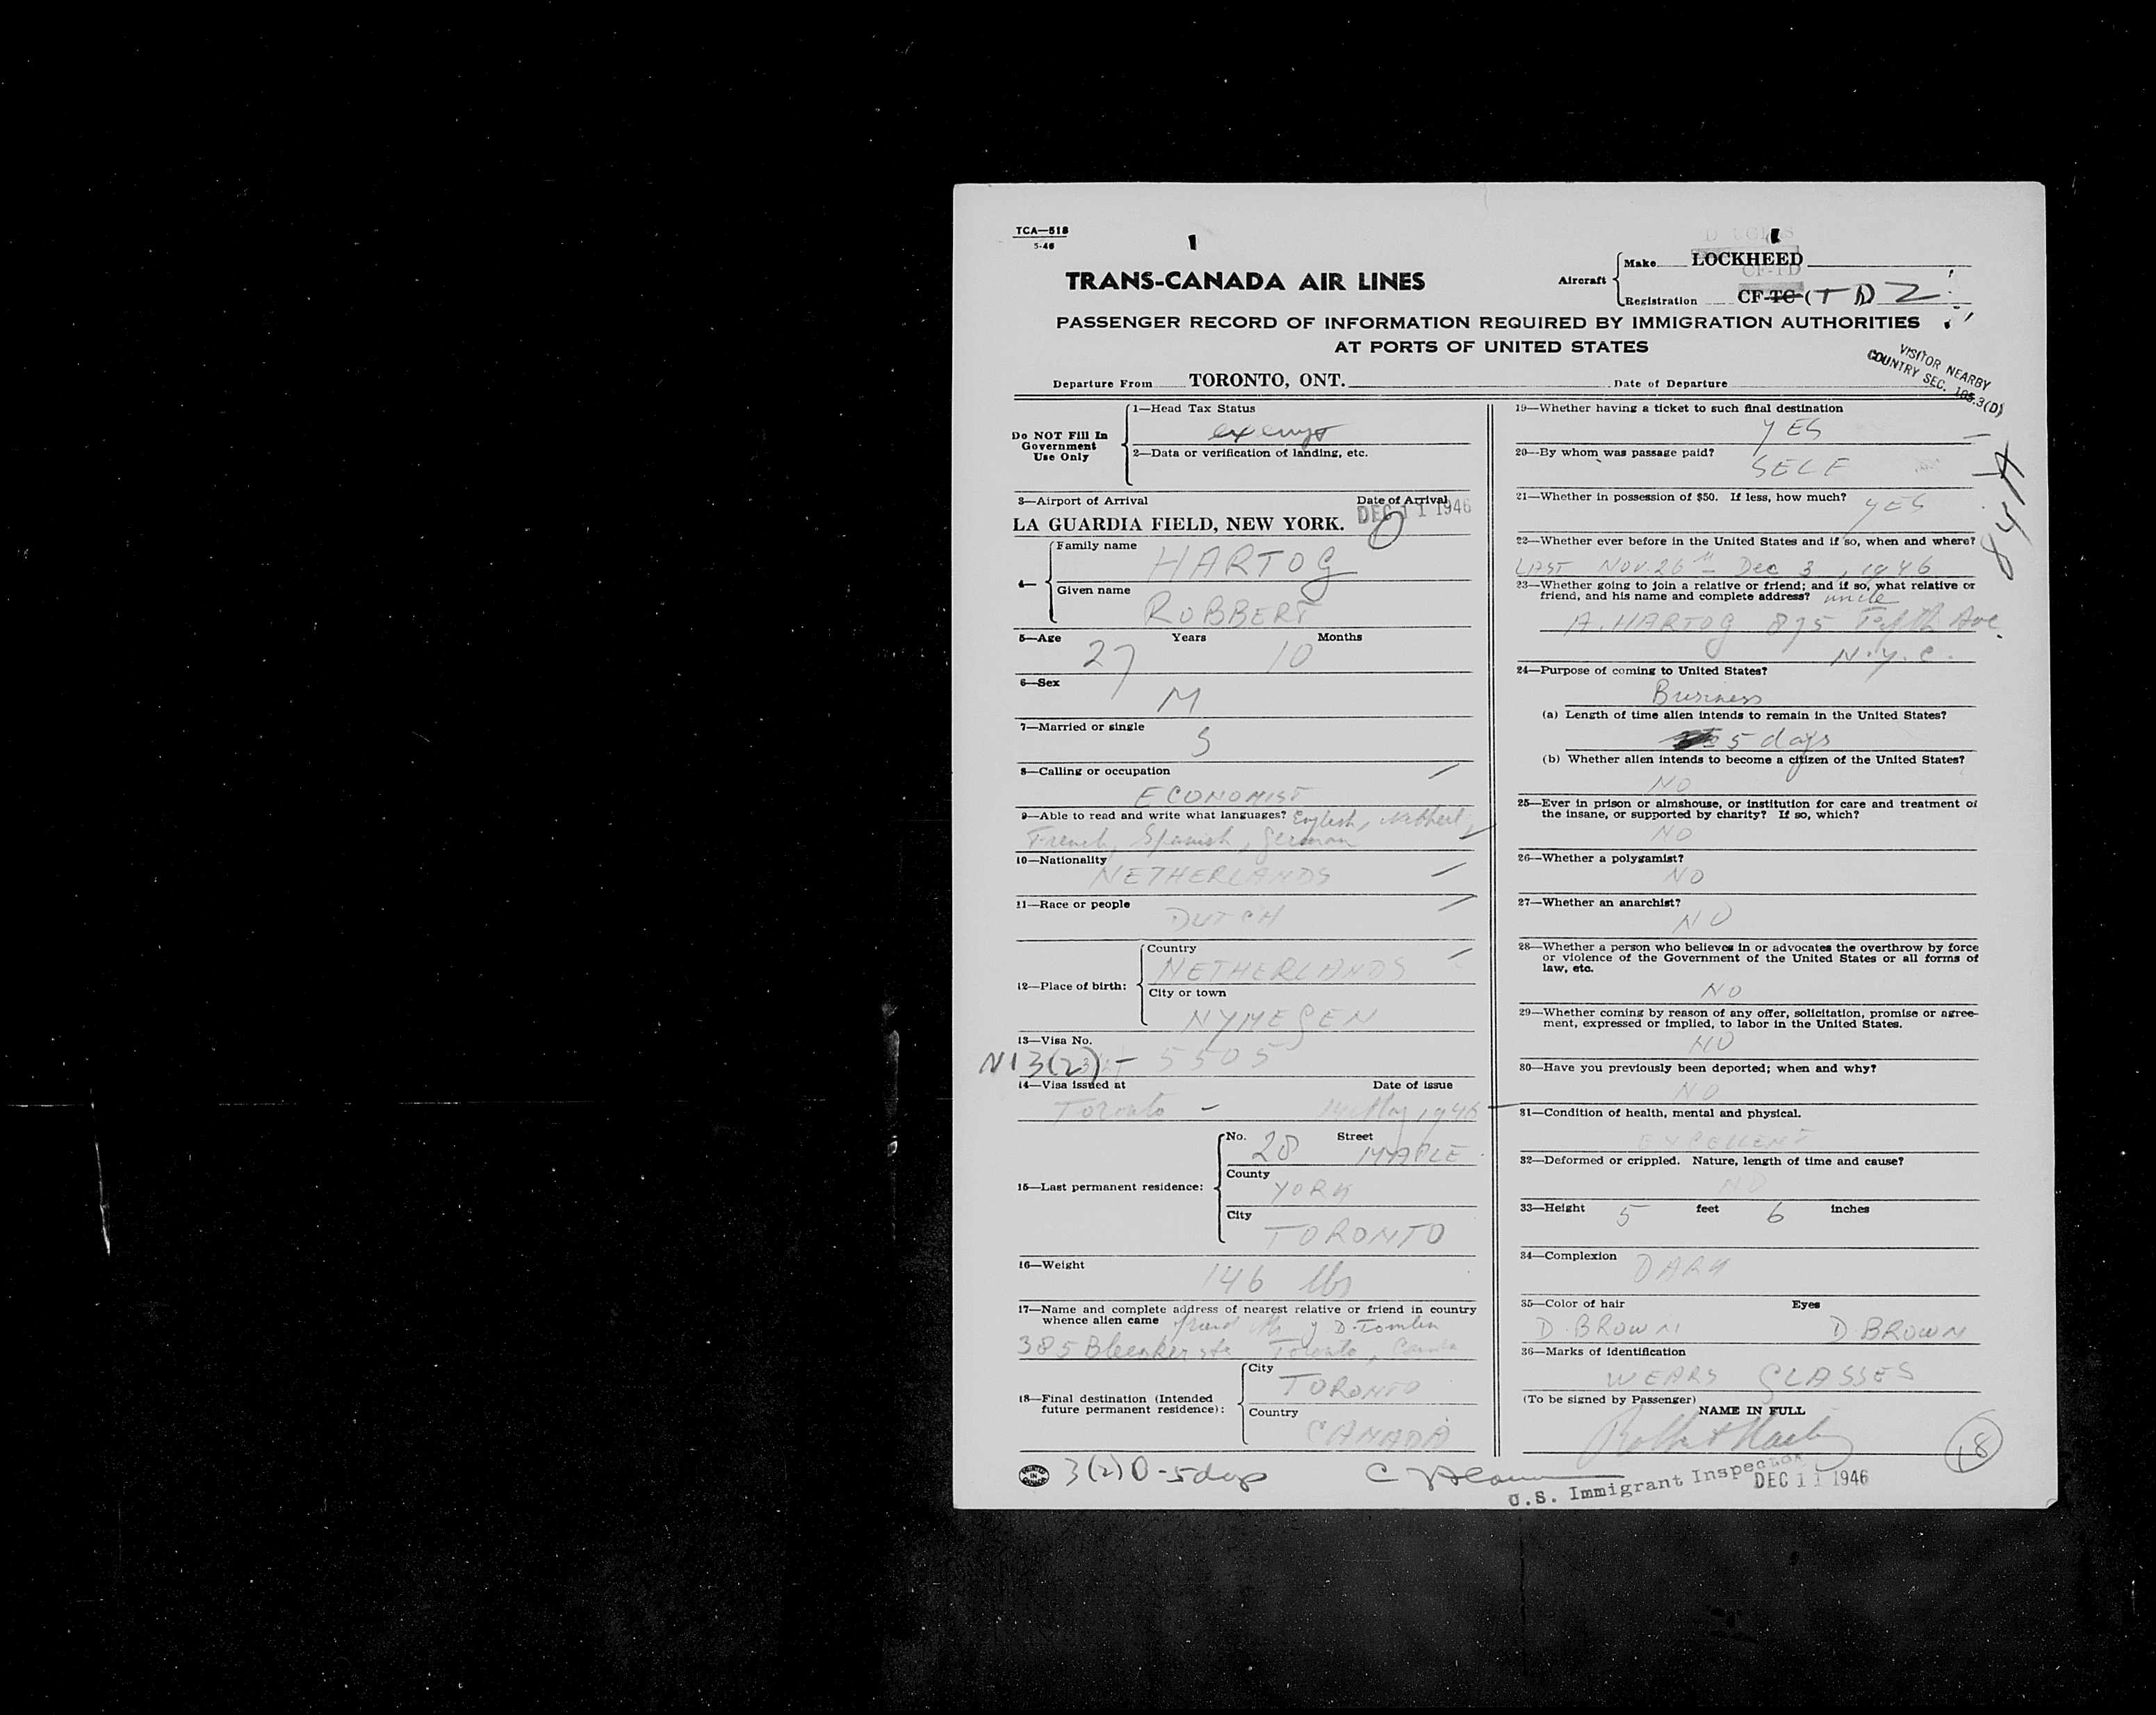 TCA—518
5-46
TRANS-CANADA AIR LINES
Aircraft
Make LOCKHEED
CF-TD
Registration CF-TC-(T D Z
PASSENGER RECORD OF INFORMATION REQUIRED BY IMMIGRATION AUTHORITIES
AT PORTS OF UNITED STATES
VISITOR NEARBY
COUNTRY SEC. 165.3(D)
Departure From TORONTO, ONT. Date of Departure
Do NOT Fill In
Government
Use Only
1—Head Tax Status
exempt
2—Data or verification of landing, etc.
3—Airport of Arrival Date of Arrival
LA GUARDIA FIELD, NEW YORK. DEC 11 1946
4—
Family name
HARTOG
Given name
ROBBERT
5—Age Years Months
27 10
6—Sex
M
7—Married or single
S
8—Calling or occupation
ECONOMIST
9—Able to read and write what languages? English,
French, Spanish, German
10—Nationality
NETHERLANDS
11—Race or people
DUTCH
12—Place of birth:
Country
NETHERLANDS
City or town
NYMEGEN
13—Visa No.
N13(2) - 5505
14—Visa issued at Date of issue
Toronto - 1946
15—Last permanent residence:
No. 28 Street MAPLE
County
YORK
City
TORONTO
16—Weight
146 lbs
17—Name and complete address of nearest relative or friend in country
whence alien came friend D. Tomlin
385 Bleeker str Toronto, Canada
18—Final destination (Intended
future permanent residence):
City
TORONTO
Country
CANADA
PRINTED IN CANADA
3(2)D-5days
19—Whether having a ticket to such final destination
YES
20—By whom was passage paid?
SELF
21—Whether in possession of $50. If less, how much?
YES
22—Whether ever before in the United States and if so, when and where?
LAST NOV. 26th - Dec 3, 1946
23—Whether going to join a relative or friend; and if so, what relative or
friend, and his name and complete address? uncle
A. HARTOG 875 Fifth Ave.
N.Y.C.
24—Purpose of coming to United States?
Business
(a) Length of time alien intends to remain in the United States?
5 days
(b) Whether alien intends to become a citizen of the United States?
NO
25—Ever in prison or almshouse, or institution for care and treatment of
the insane, or supported by charity? If so, which?
NO
26—Whether a polygamist?
NO
27—Whether an anarchist?
NO
28—Whether a person who believes in or advocates the overthrow by force
or violence of the Government of the United States or all forms of
law, etc.
NO
29—Whether coming by reason of any offer, solicitation, promise or agree-
ment, expressed or implied, to labor in the United States.
NO
30—Have you previously been deported; when and why?
NO
31—Condition of health, mental and physical.
EXCELLENT
32—Deformed or crippled. Nature, length of time and cause?
NO
33—Height 5 feet 6 inches
34—Complexion DARK
35—Color of hair Eyes
D. BROWN D BROWN
36—Marks of identification
WEARS GLASSES
(To be signed by Passenger)
NAME IN FULL
Robbert Hartog
18
U.S. Immigrant Inspector
DEC 11 1946